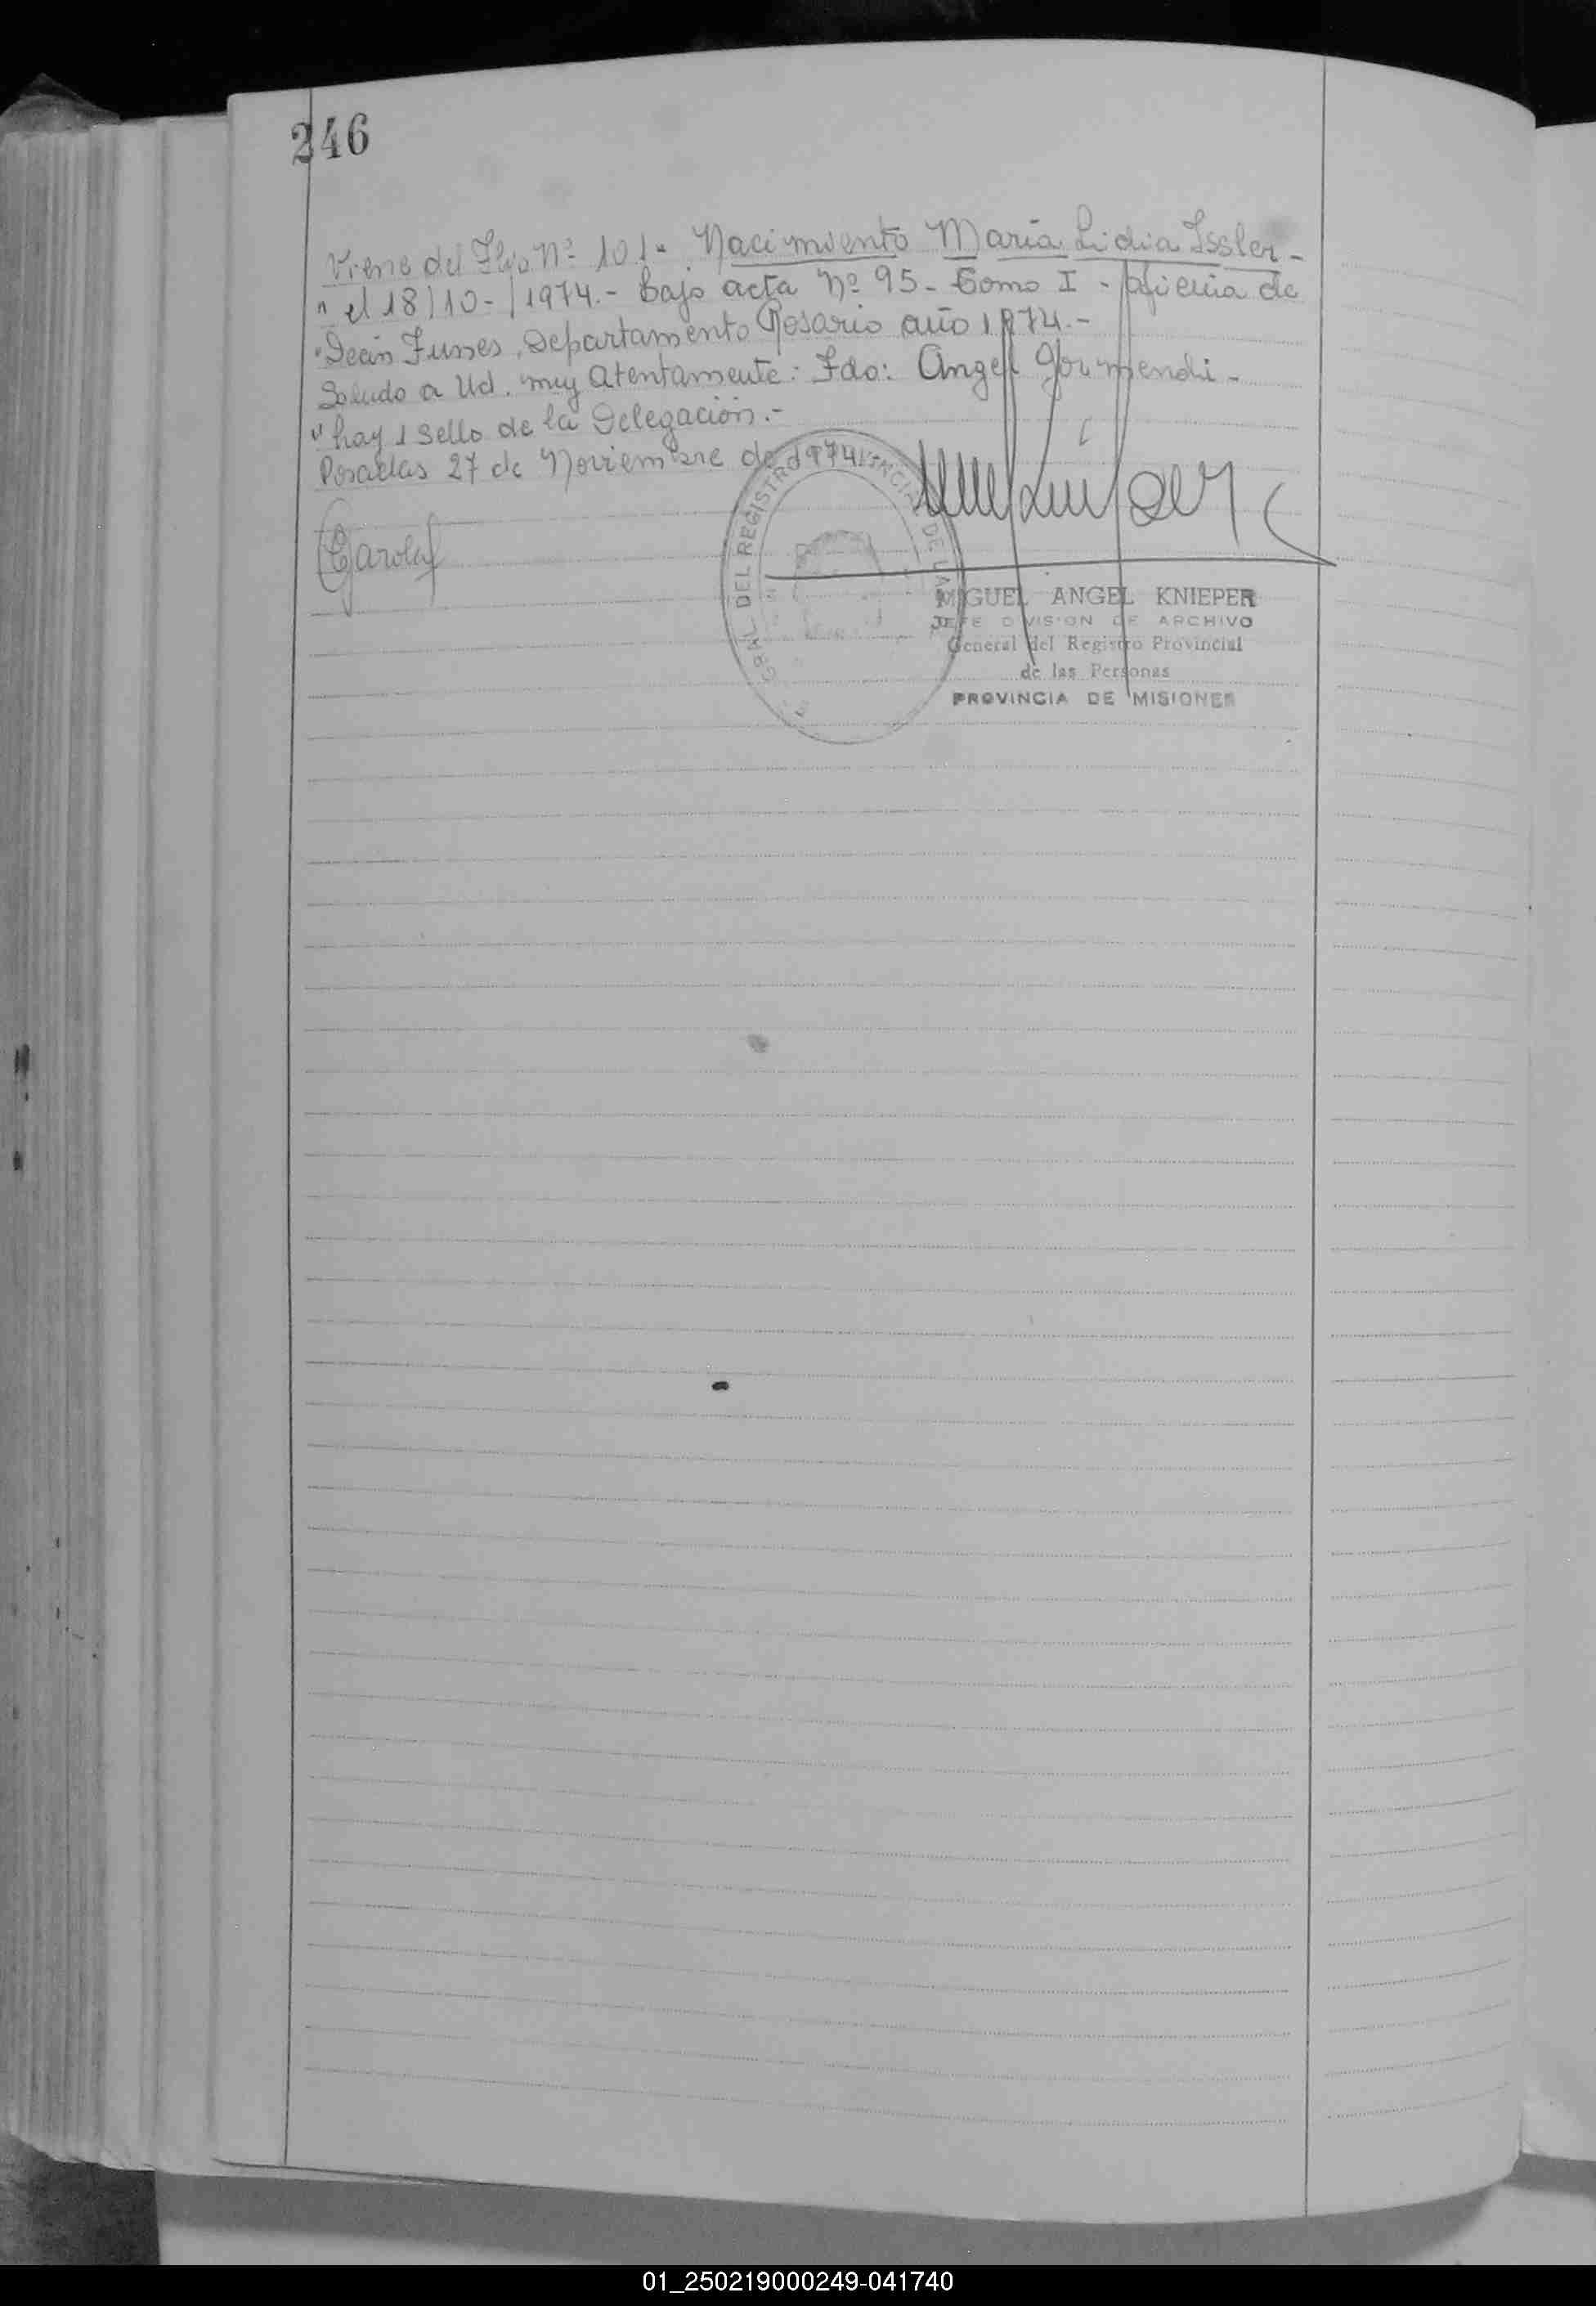 246
Viene del Flio Nº 101" Nacimiento María Lidia Issler -
" el 18/10-/1974.- bajo acta Nº 95- Tomo I - oficina de
"Deán Funes, Departamento Rosario año 1974.-
Saludo a Ud. muy Atentamente: Fdo: Angel Gormendi -
" hay 1 sello de la Delegación.-
Posadas 27 de Noviembre de 1974
GRAL DEL REGISTRO PROVINCIAL DE LAS
MIGUEL ANGEL KNIEPER
JEFE DIVISION DE ARCHIVO
General del Registro Provincial
de las Personas
PROVINCIA DE MISIONES
01_250219000249-041740